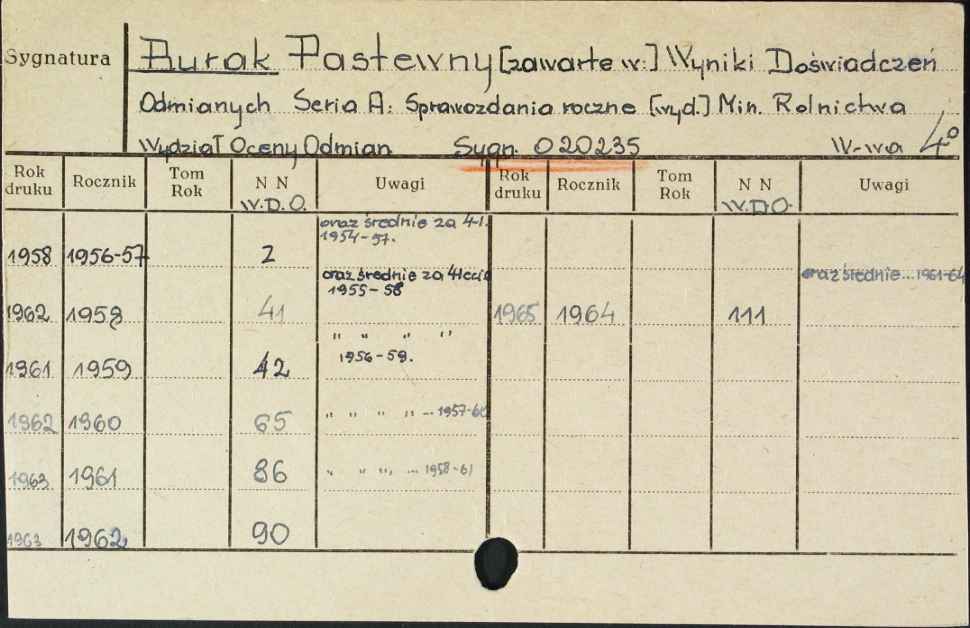 Sygnatura
Burak Pastewny [zawarte w:] Wyniki Doświadczeń
Odmianych Seria A: Sprawozdania roczne [wyd.] Min. Rolnictwa
Wydział Oceny Odmian Sygn. 020235 W-wa 4°
Rok druku Rocznik Tom Rok N N W.D.O. Uwagi Rok druku Rocznik Tom Rok N N W.D.O. Uwagi
oraz średnie za 4-l.
1958 1956-57 2 1954-57.
oraz średnie za 4lecie oraz średnie... 1961-64
1955-58
1962 1958 41 1965 1964 111
" " " "
1961 1959 42 1956-59.
1962 1960 65 " " " " ... 1957-60
1963 1961 86 " " " " ... 1958-61
1963 1962 90